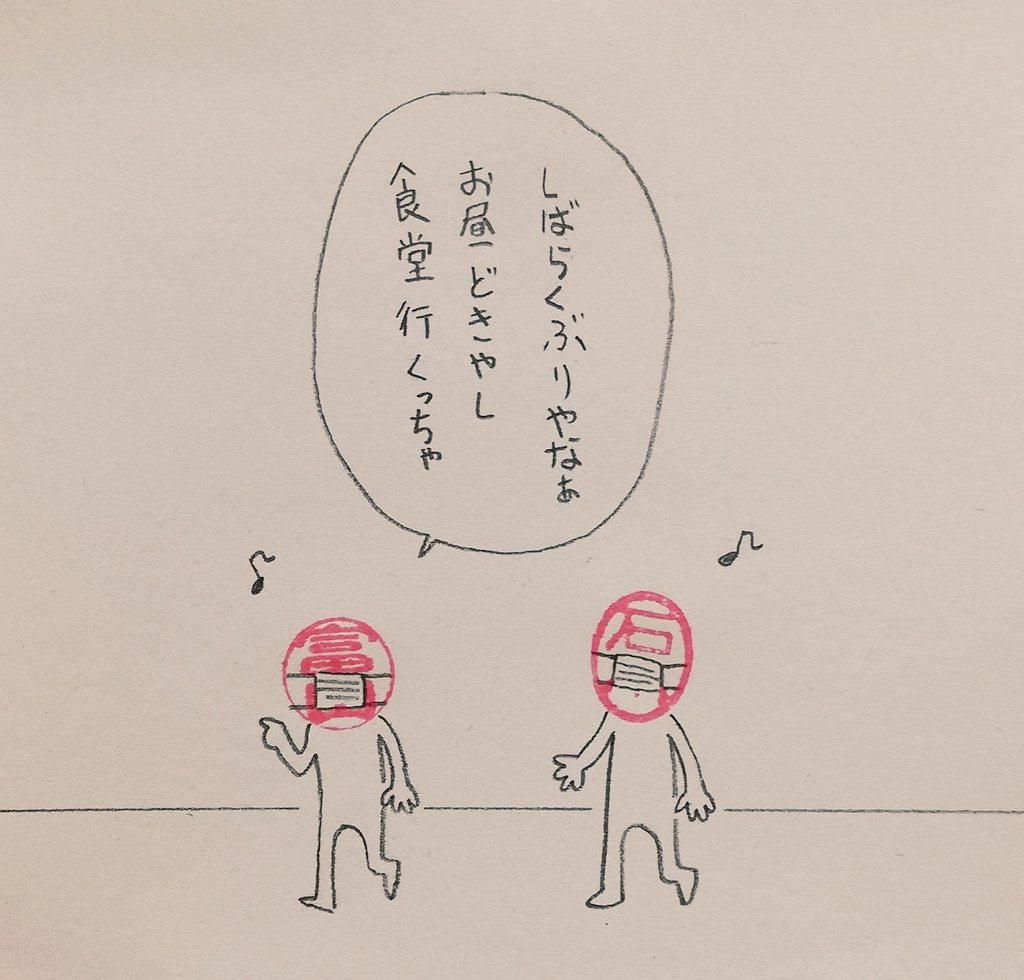 しばらくぶりやなぁ
お昼どきやし
食堂行くっちゃ
石